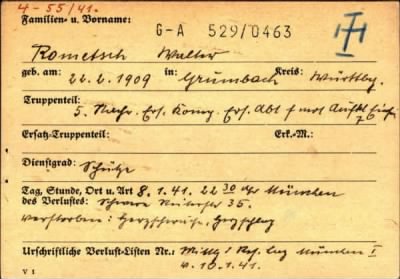 4-55/41.
Familien- u. Vorname:
G-A 529/0463
Rometsch Walter
geb. am: 22.2.1909 in: Grumbach Kreis: Württbg.
Truppenteil:
5. Nachr. Ers. Komp. Ers. Abt f mot
Ersatz-Truppenteil: Erk.-M.:
Dienstgrad: Schütze
Tag, Stunde, Ort u. Art 8.1.41. 22 30 Uhr München
des Verlustes: Schwere 35.
verstorben: Herzschlag
Urschriftliche Verlust-Listen Nr.: Res. Laz München I
v. 10.1.41.
V I